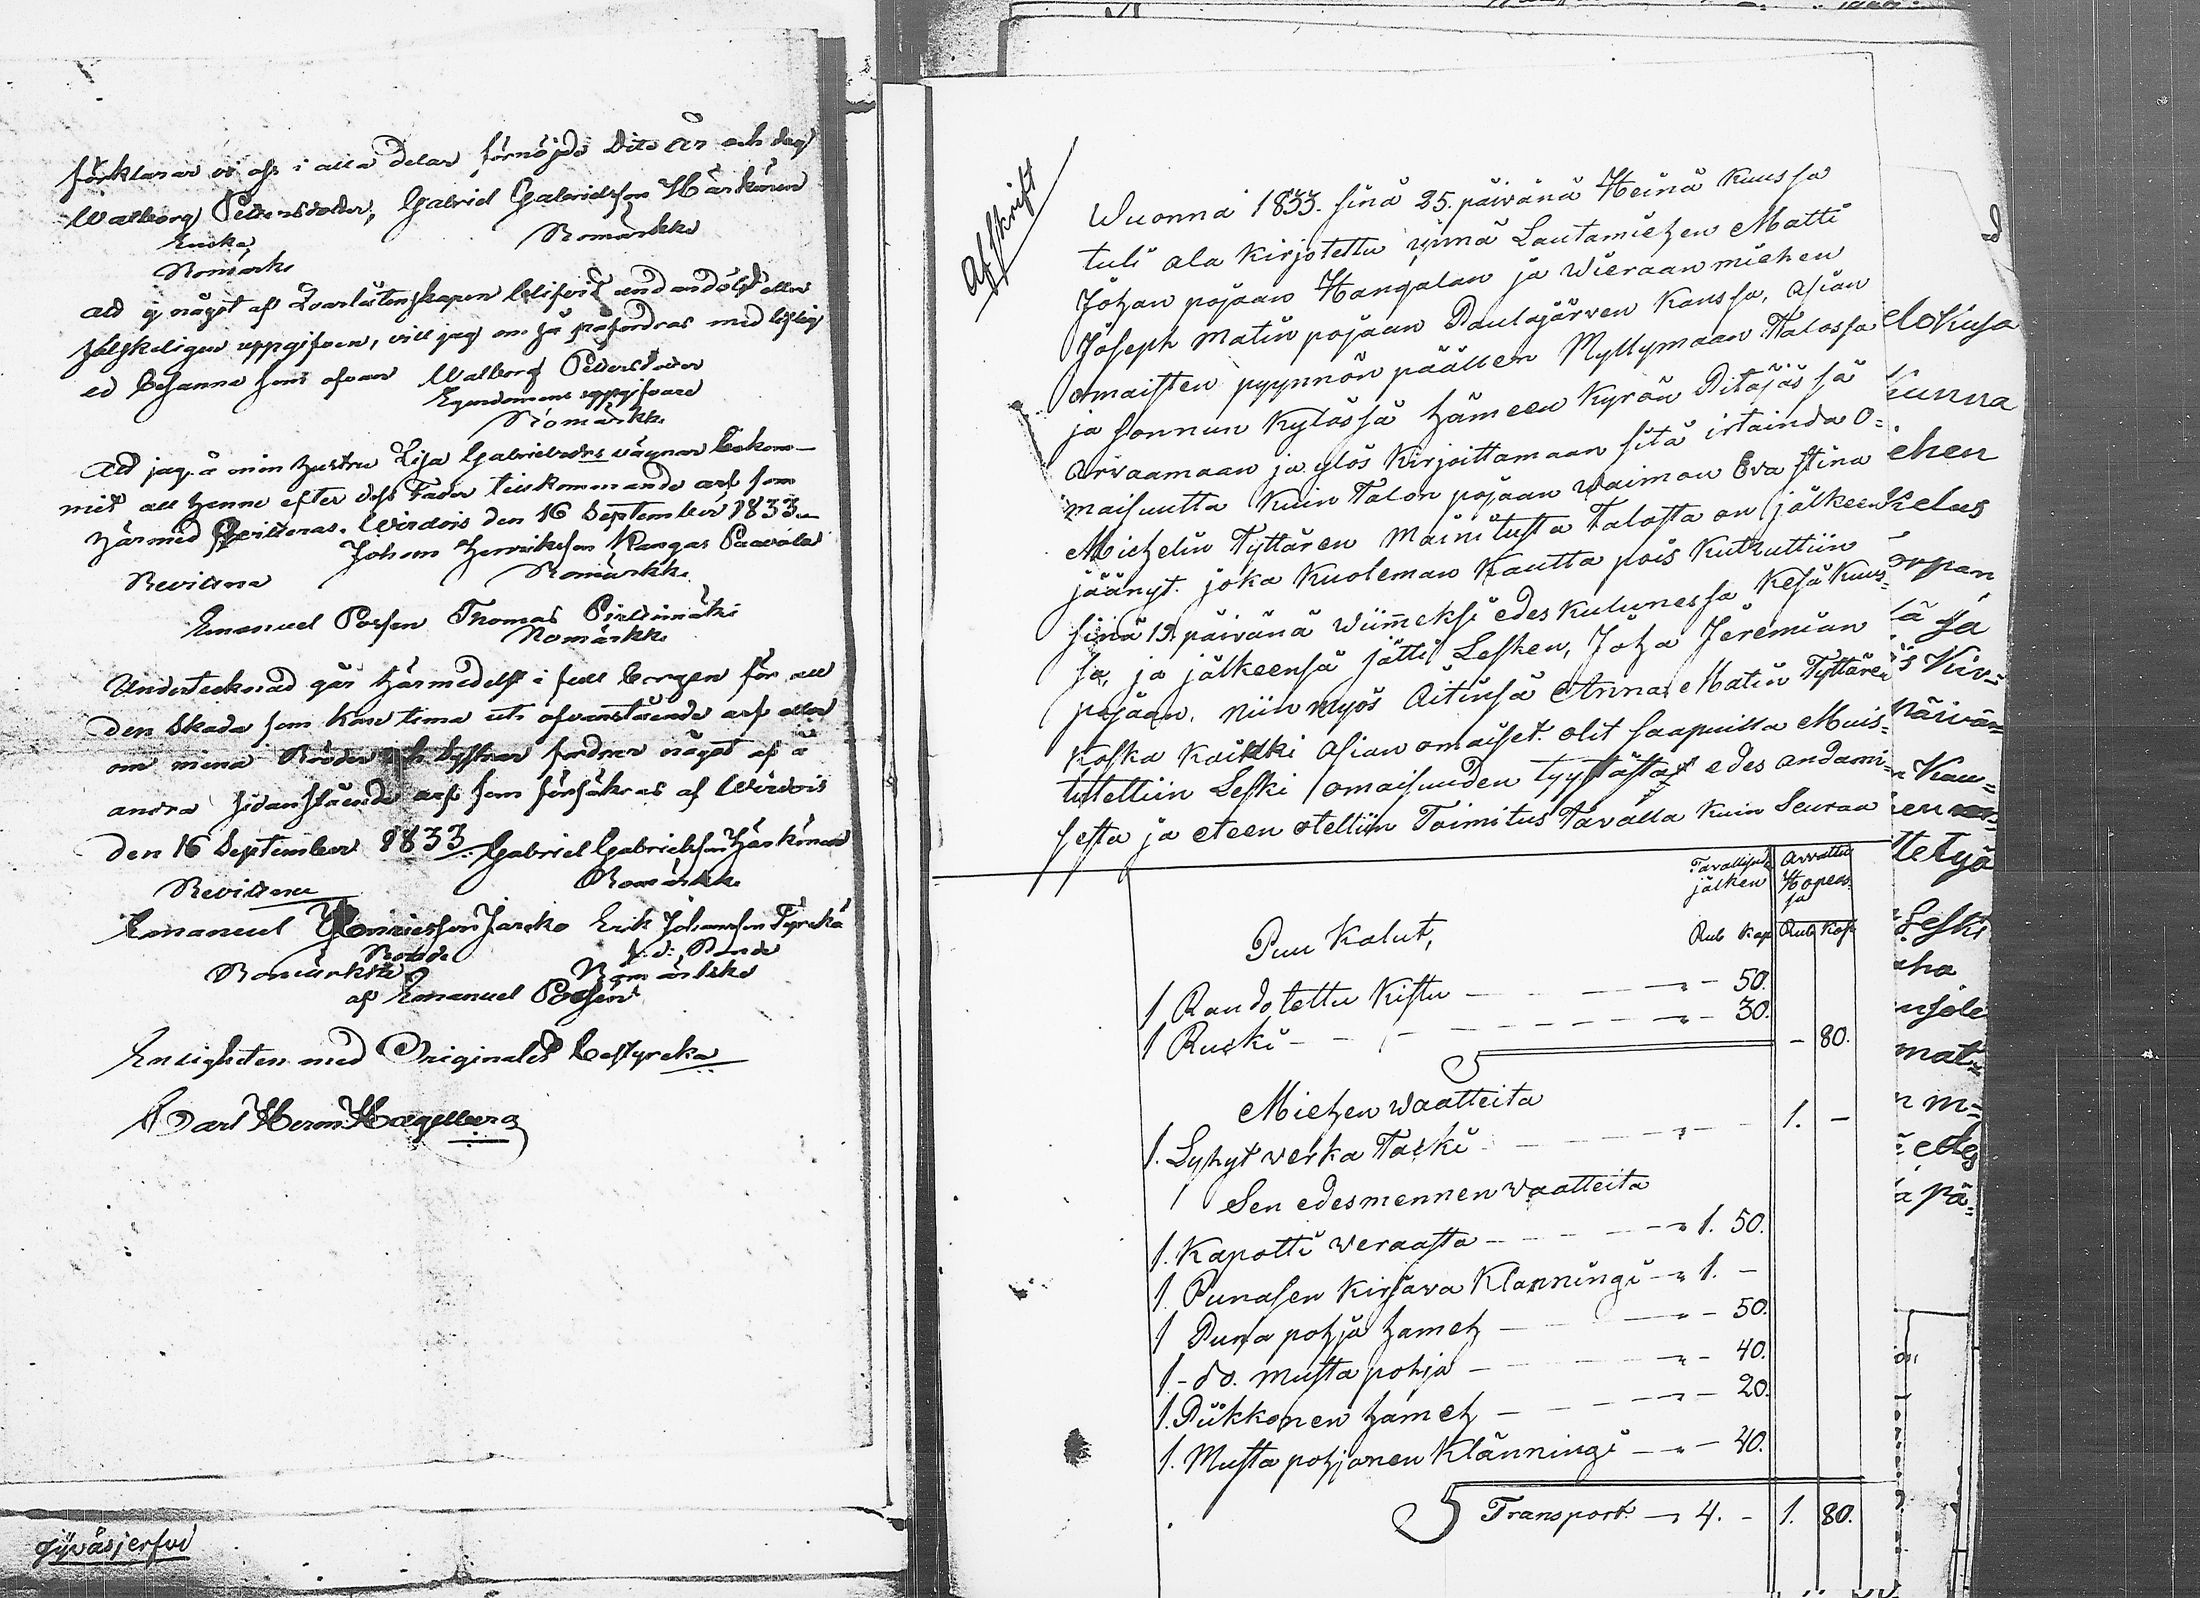 förklarar vi oss i alla delar förnöjde Dito År och dag
Walborg Pettersdotter, Gabriel Gabrielsson Härkönen
Enka, Bomärke
Bomärke
Att ej något af Qvarlåtenskapen blifvit undandöljt eller
felskeligen uppgifven, vill jag om så påfordras med liflig
ed besanna som ofvan Walborg Pettersdotter
Egendomens uppgifvare
Bomärke
Att jag å min hustru Lisa Gabrielsdrs vägnar bekom-
mit all henne efter dess Fader tillkommande arf som
härmed qvitteras. Wirdois den 16 September 1833.
Johan Henriksson Kangas Paavola
Bevittna Bomärke
Emanuel Posse'n Thomas Pirttimäki
Bomärke
Undertecknad går härmedelst i full borgen för all
den skada som kan tima uti ofvanstående arf eller
om mina Bröder och Systrar fordrar något af å
andra sidan stående arf som försäkras af Wirdois
den 16 September 1833. Gabriel Gabrielsson Härkönen
Bevittna Bomärke
Emanuel Henricsson Jäsko Erik Johansson Tyrckö
Bonde f. d. Bonde
Bomärke Bomärke
af Emanuel Posse'n
Enligheten med Originalet bestyrcka
Carl Herm Hagelberg
Jyväsjerfvi
Afskrift
Wuonna 1833. sinä 25. päivänä Heinä Kuussa
tuli ala Kirjotettu ynnä Lautamiehen Matti
Johan pojaan Hangalan ja Wieraan miehen
Joseph Matin pojaan Paulajärven Kanssa, asian
omaisten pyynnön päällen Myllymaan Talossa
ja Sonnun Kylässä Hämeen Kyrön Pitäjäs sä
Arvaamaan ja ylös Kirjoittamaan sitä irtainda O=
maisuutta Kuin Talon pojaan Waimon Eva Stina
Michelin Tyttären Mainitusta Talosta on jälkeen
jäänyt. joka Kuoleman Kautta pois Kutzuttiin
sinä 19. päivänä Wiimeksi edes kulunessa Kesä Kuus=
sa, ja jälkeensä jätti Lesken, Joha Jeremian
pojaan, niin myös Äitinsä Anna Matin Tyttären
Koska Kaikki asian omaiset olit saapuilla Muis-
tutettiin Leski omaisuuden tyystästä edes andami-
sesta ja eteen otettiin Toimitus Tavalla Kuin Seuraa
Tavallisude jälken Arvattu Hopeas sa
Rub Kop Rub Kop
Puu Kalut,
1 Randotettu Kistu - - - 50.
1 Rucki - - - 30.
- 80.
Miehen Waatteita
1. Lyhyt verka Tacki - - - 1. -
Sen edesmennen Waatteita
1. Kapotti Weraasta - - - 1. 50.
1. Punasen Kirjava Klänningi - 1. -
1 Puna pohja hameh - - - 50.
1 - do. musta pohja - - - 40.
1. Piikkonen hameh - - - 20.
1. Musta pohjanen Klänningi - - 40.
Transport - 4. - 1. 80.